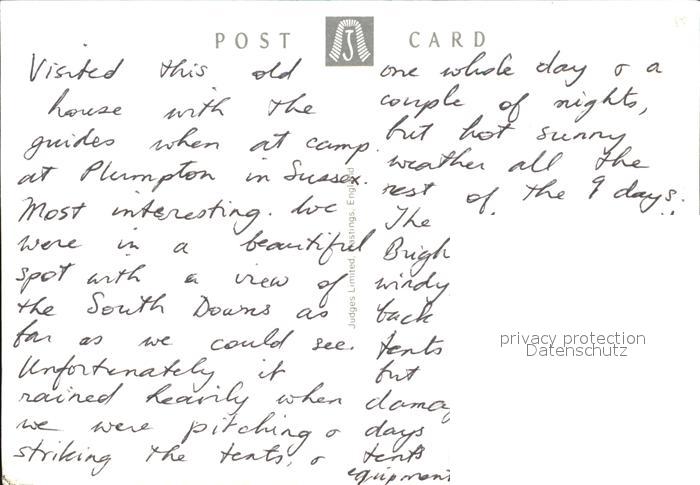 POST CARD
Visited this old
house with the
guides when at camp
at Plumpton in Sussex.
Most interesting. We
were in a beautiful
spot with a view of
the South Downs as
far as we could see.
Unfortunately it
rained heavily when
we were pitching &
striking the tents, &
Judges Limited, Hastings, England
one whole day & a
couple of nights,
but hot sunny
weather all the
rest of the 9 days.
The
Brigh
windy
back
tents
but
damag
days
tents
equipment
privacy protection
Datenschutz